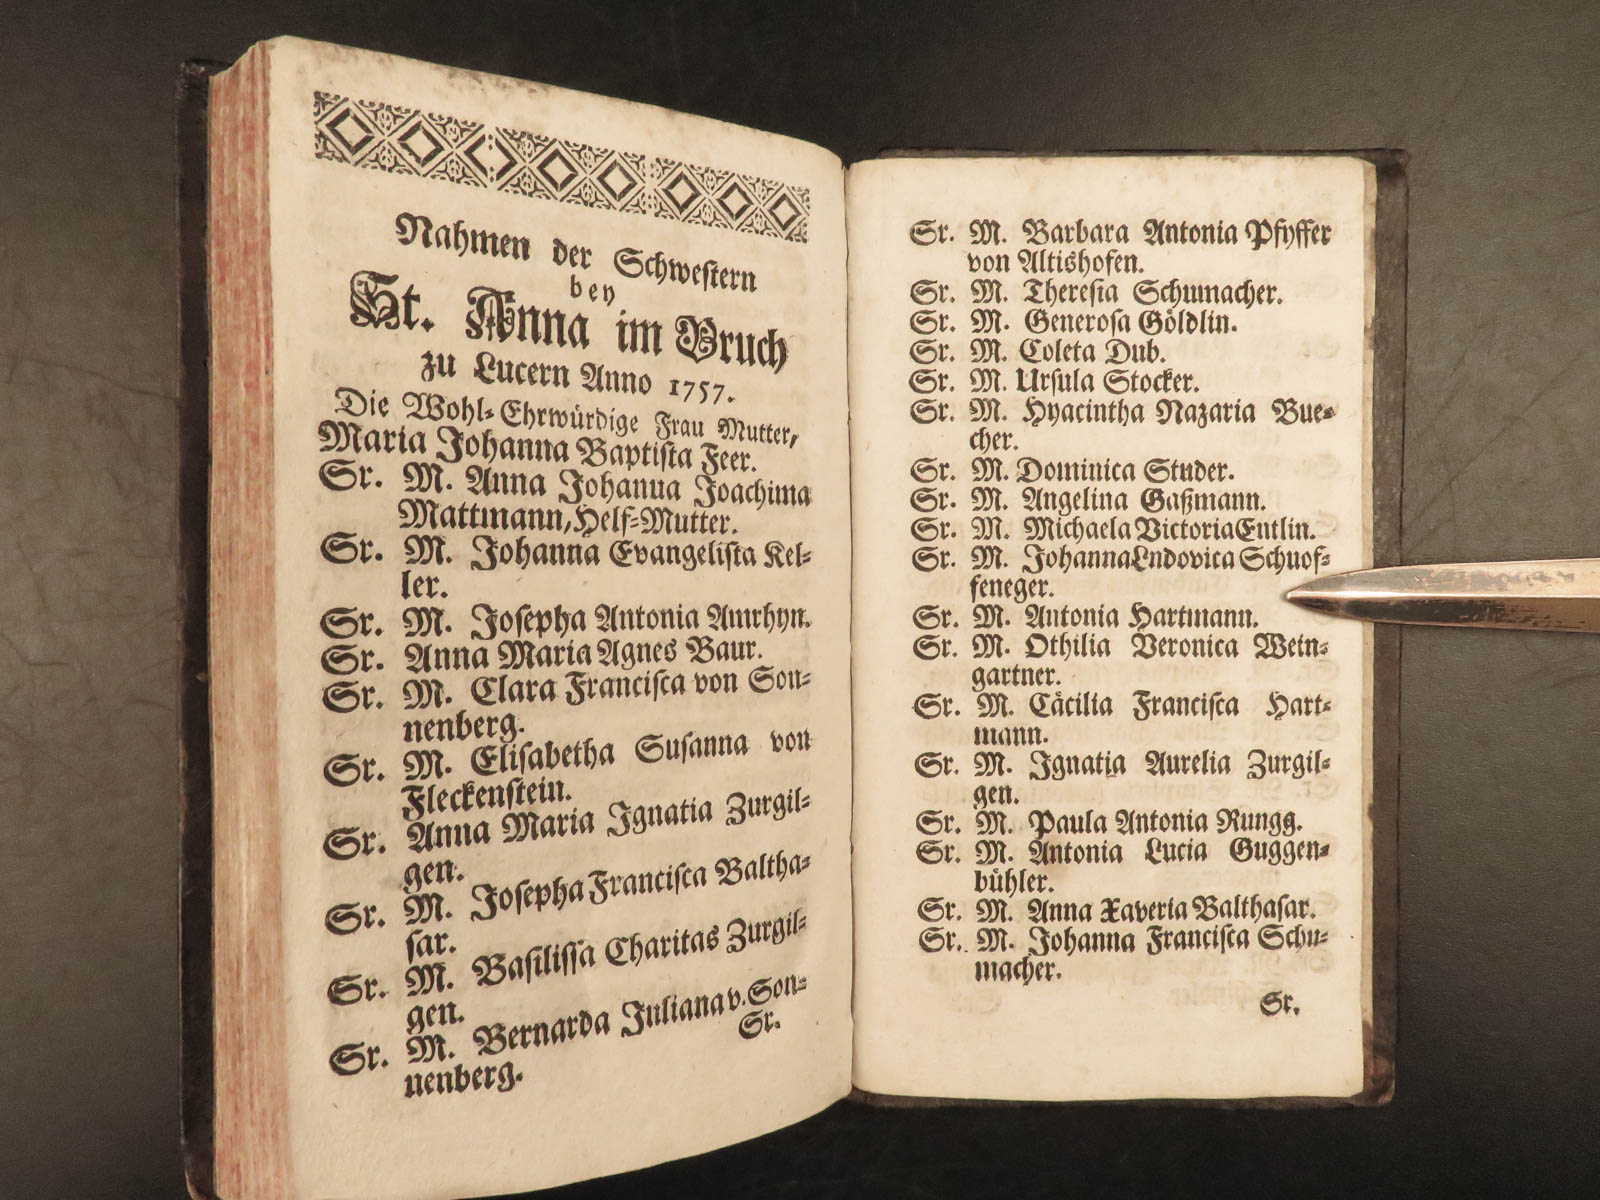 Nahmen der Schwestern
bey
St. Anna im Bruch
zu Lucern Anno 1757.
Die Wohl-Ehrwürdige Frau Mutter,
Maria Johanna Baptista Feer.
Sr. M. Anna Johanua Joachima
Mattmann, Helf-Mutter.
Sr. M. Johanna Evangelista Kel-
ler.
Sr. M. Josepha Antonia Amrhyn.
Sr. Anna Maria Agnes Baur.
Sr. M. Clara Francisca von Son-
nenberg.
Sr. M. Elisabetha Susanna von
Fleckenstein.
Sr. Anna Maria Ignatia Zurgil-
gen.
Sr. M. Josepha Francisca Baltha-
sar.
Sr. M. Basilissa Charitas Zurgil-
gen.
Sr. M. Bernarda Juliana v. Son-
nenberg.
Sr.
Sr. M. Barbara Antonia Pfyffer
von Altishofen.
Sr. M. Theresia Schumacher.
Sr. M. Generosa Göldlin.
Sr. M. Coleta Dub.
Sr. M. Ursula Stocker.
Sr. M. Hyacintha Nazaria Bue-
cher.
Sr. M. Dominica Studer.
Sr. M. Angelina Gaßmann.
Sr. M. Michaela Victoria Entlin.
Sr. M. Johanna Lndovica Schuof-
feneger.
Sr. M. Antonia Hartmann.
Sr. M. Othilia Veronica Wein-
gartner.
Sr. M. Cäcilia Francisca Hart-
mann.
Sr. M. Ignatia Aurelia Zurgil-
gen.
Sr. M. Paula Antonia Rungg.
Sr. M. Antonia Lucia Guggen-
bühler.
Sr. M. Anna Xaveria Balthasar.
Sr. M. Johanna Francisca Schu-
macher.
Sr.